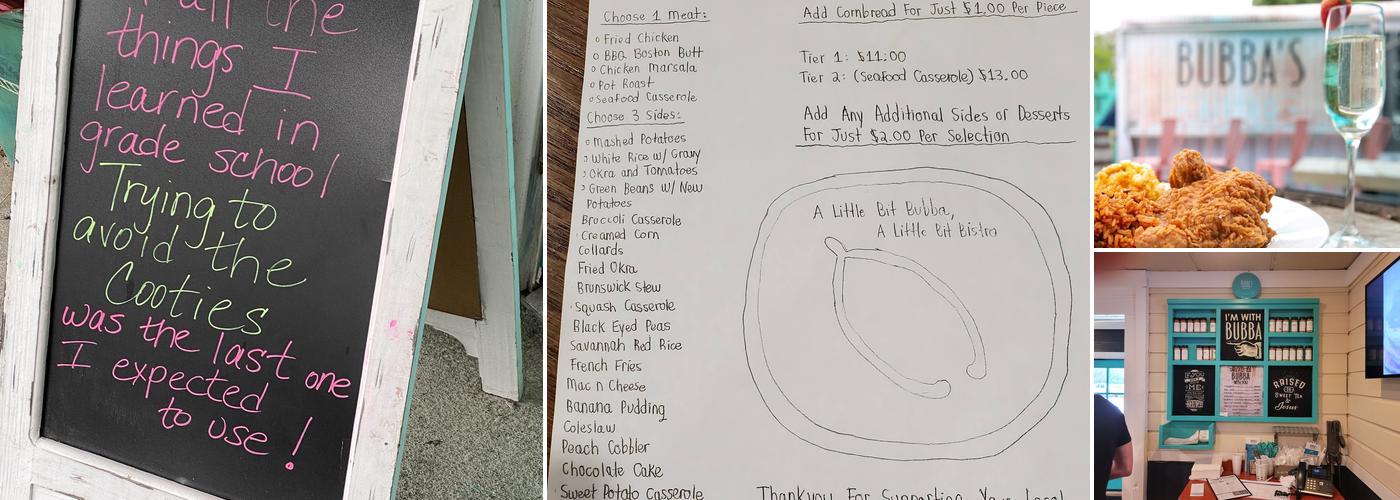 all the
things I
learned in
grade school
Trying to
avoid the
Cooties
was the last one
I expected
to use!
Choose 1 Meat:
Fried Chicken
BBQ Boston Butt
Chicken Marsala
Pot Roast
Seafood Casserole
Choose 3 Sides:
Mashed Potatoes
White Rice w/ Gravy
Okra and Tomatoes
Green Beans w/ New
Potatoes
Broccoli Casserole
Creamed Corn
Collards
Fried Okra
Brunswick Stew
Squash Casserole
Black Eyed Peas
Savannah Red Rice
French Fries
Mac n Cheese
Banana Pudding
Coleslaw
Peach Cobbler
Chocolate Cake
Sweet Potato Casserole
Add Cornbread For Just $1.00 Per Piece
Tier 1: $11.00
Tier 2: (Seafood Casserole) $13.00
Add Any Additional Sides or Desserts
For Just $2.00 Per Selection
A Little Bit Bubba,
A Little Bit Bistro
Thankyou For Supporting Your Local
BUBBA'S
I'M WITH
BUBBA
BUBBA
RAISED
SWEET TEA
Jesus